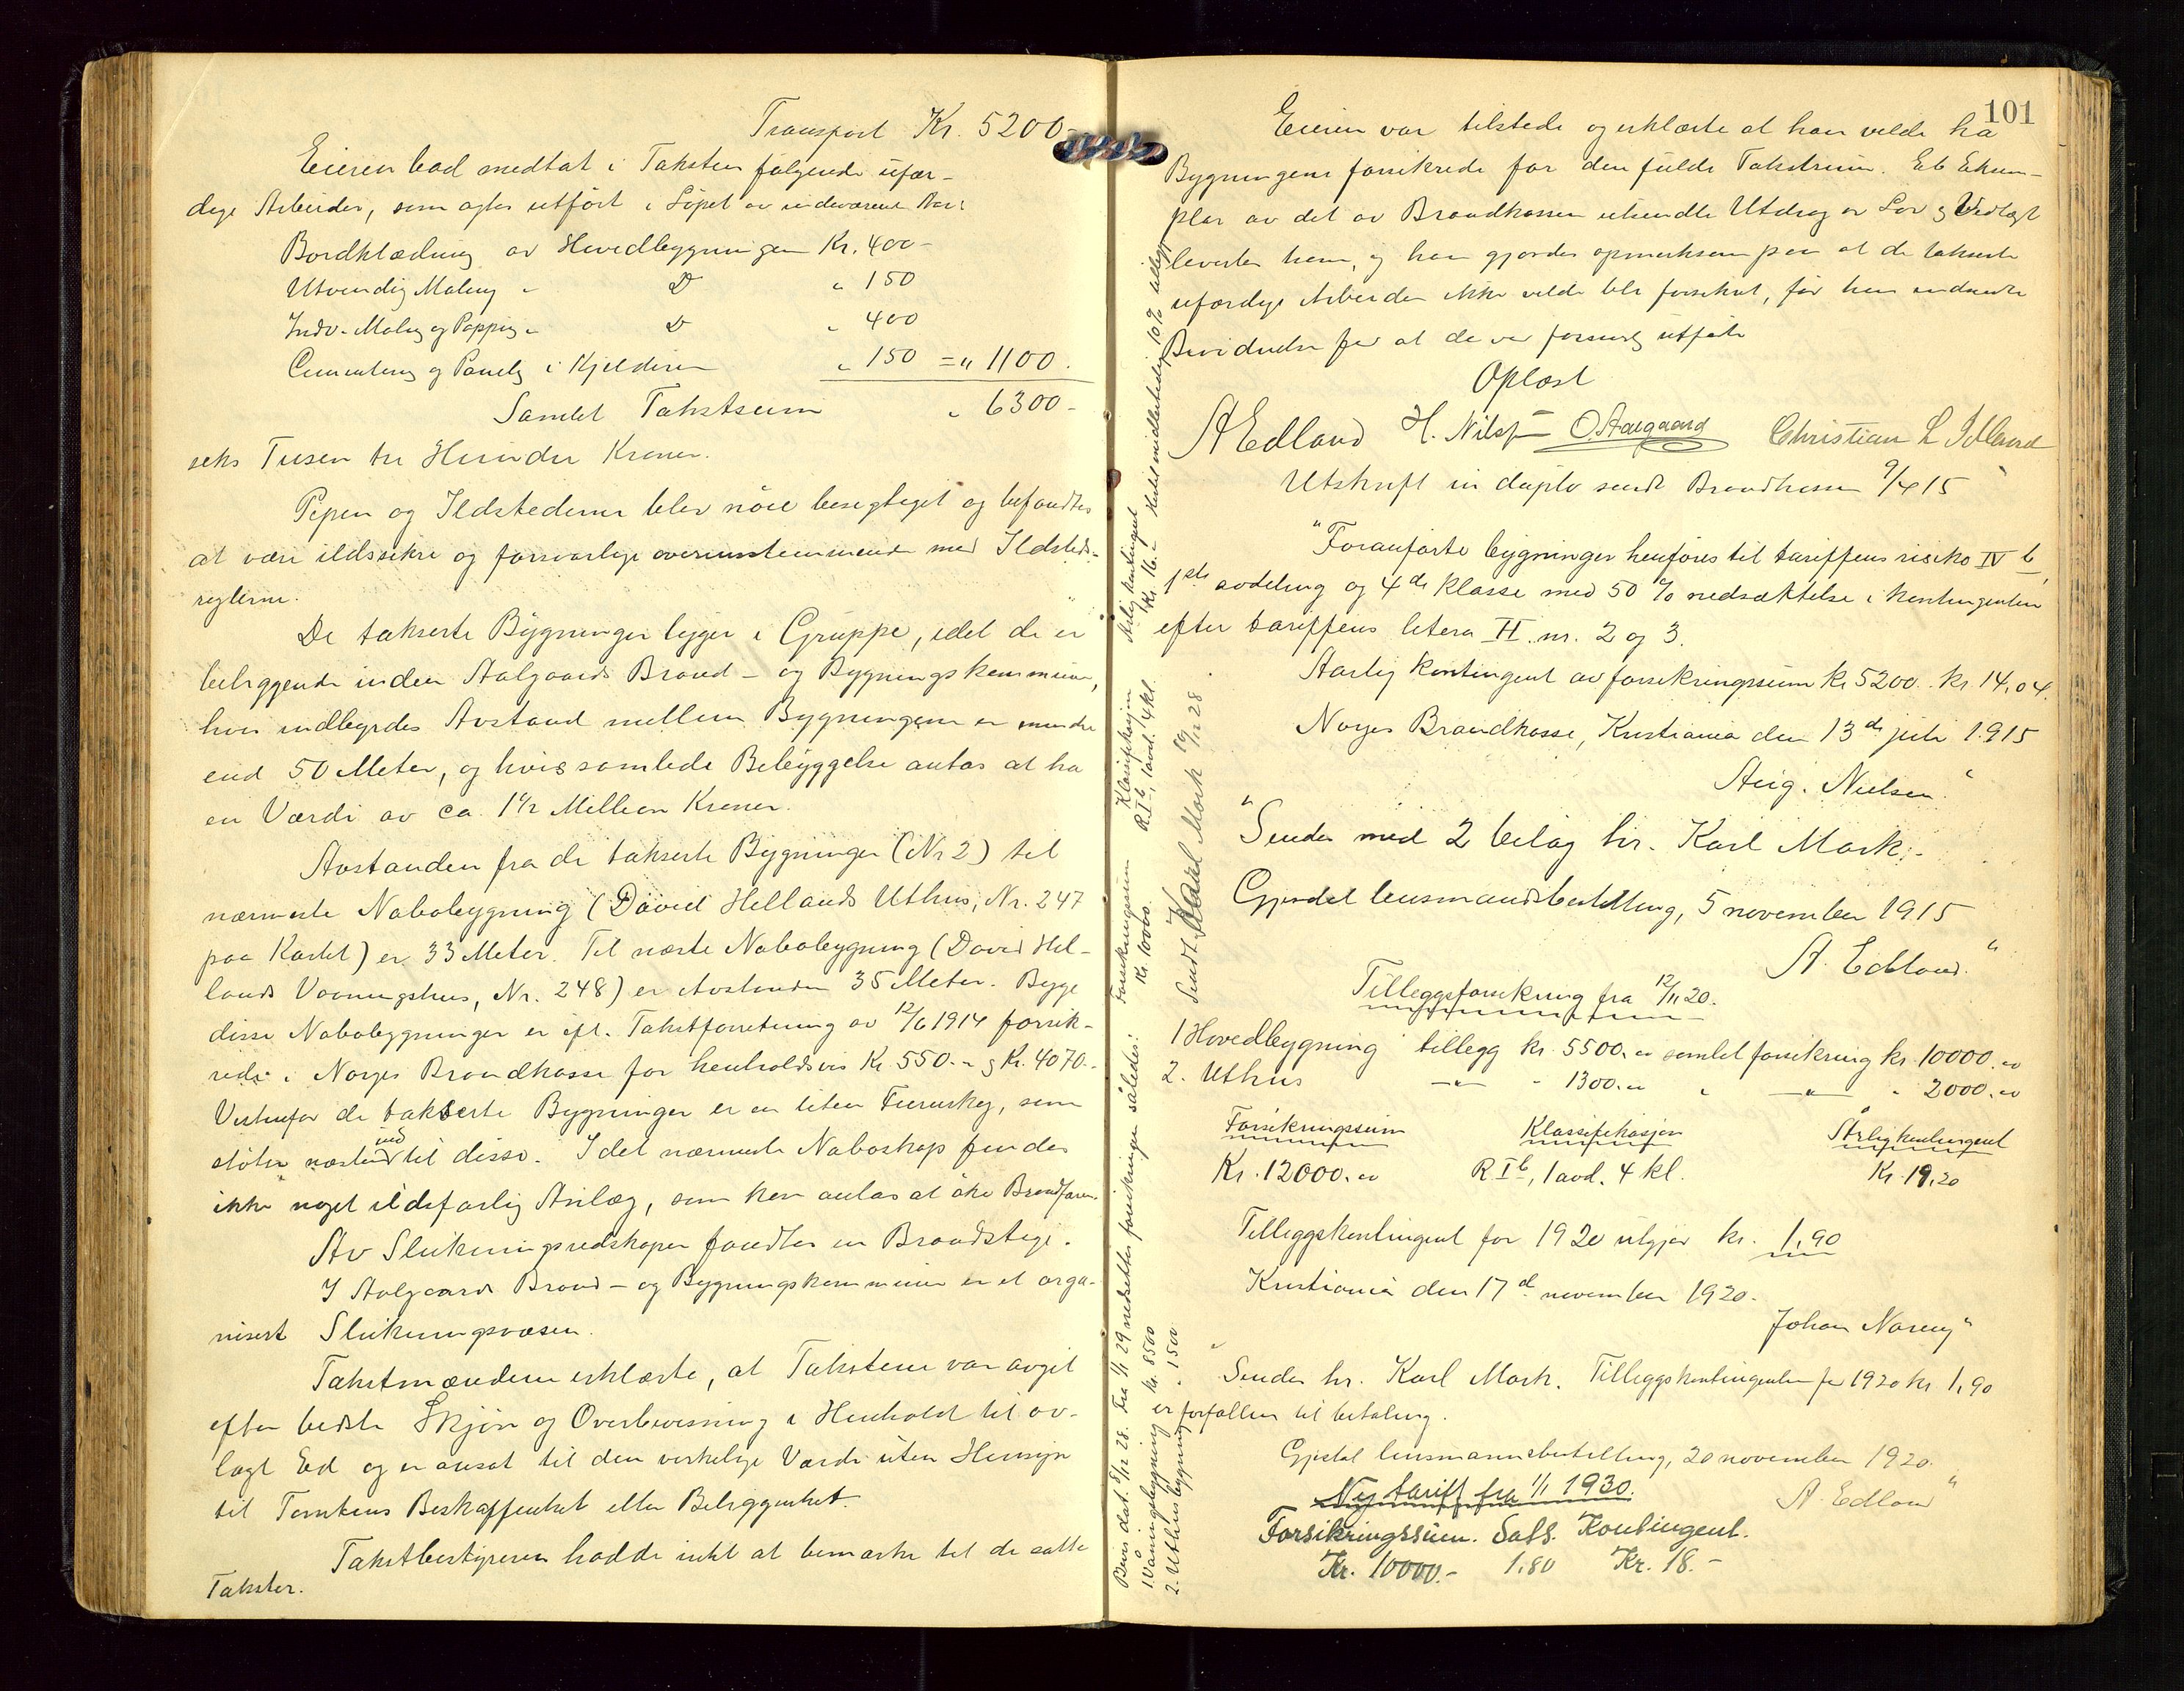 Transport Kr. 5200-
Eieren bad medtat i Taksten følgende ufær-
dige Arbeider, som agtes utført i Løpet av indeværende Aar:
Bordklædning av Hovedbygningen Kr. 400-
Utvendig Maling " D " 150
Indv. Maling og Papping " D " 400
Cementering og Paneling i Kjelderen " 150 = " 1100.
Samlet Takstsum " 6300-
seks Tusen tre Hundre Kroner.
Pipen og Ildstederne blev nøie besigtiget og befandtes
at være ildssikre og forsvarlige overensstemmende med Ildsteds-
reglerne.
De takserte Bygninger ligger i Gruppe, idet de er
beliggende inden Aalgaards Brand- og Bygningskommune,
hvis indbyrdes Avstand mellem Bygningerne er mindre
end 50 Meter, og hvis samlede Bebyggelse antas at ha
en Værdi av ca. 1 1/2 Million Kroner.
Avstanden fra de takserte Bygninger (Nr 2) til
nærmeste Nabobygning (David Hellands Uthus, Nr. 247
paa Kartet) er 33 Meter. Til næste Nabobygning (David Hel-
lands Vaaningshus, Nr. 248) er Avstanden 35 Meter. Begge
disse Nabobygninger er ifl. Takstforretning av 12/6 1914 forsik-
rede i Norges Brandkasse for henholdsvis Kr. 550.- og Kr. 4070.-
Vestenfor de takserte Bygninger er en liten Furuskog, som
støter næsten ind til disse. I det nærmeste Naboskap findes
ikke noget ildsfarlig Anlæg, som kan antas at øke Brandfaren.
Av Slukningsredskaper fandtes en Brandstige.
I Aalgaards Brand- og Bygningskommune er et orga-
nisert Slukningsvæsen.
Takstmændene erklærte, at Taksterne var avgit
efter bedste Skjøn og Overbevisning i Henhold til av-
lagt Ed og er ansat til den virkelige Værdi uten Hensyn
til Tomtens Beskaffenhet eller Beliggenhet.
Takstbestyreren hadde intet at bemærke til de satte
Takster.
101
Eieren var tilstede og erklærte at han vilde ha
Bygningene forsikrede for den fulde Takstsum. Et Eksem-
plar av det av Brandkassen utsendte Utdrag av Lov og Vedtægt
levertes ham, og han gjordes opmerksom paa at de takserte
ufærdige Arbeider ikke vilde bli forsikret, før han indsendte
Bevidnelse for at de var forsvarlig utførte
Oplæst
A Edland H. Nilsen O. Aalgaard Christian L Edland
Utskrift in duplo sendt Brandkassen 9/4 15
"Foranførte bygninger henføres til tariffens risiko IV b,
1ste avdeling og 4de klasse med 50 % nedsættelse i kontingenten
efter tariffens litera II. nr. 2 og 3.
Aarlig kontingent av forsikringssum kr 5200.. kr 14,04.
Norges Brandkasse, Kristiania den 13de juli 1915
Aug. Nielsen."
"Sendes med 2 bilag hr. Karl Mork.-
Gjesdal lensmandsbestilling, 5 november 1915
A. Edland."
Tilleggsforsikring fra 12/11 20.
1 Hovedbygning tillegg kr. 5500.00 samlet forsikring kr. 10000.00
2. Uthus -"- " 1300.00 " -"- " 2000.00
Forsikringssum Klassifikasjon Årlig kontingent
Kr. 12000.00 R I b, 1 avd. 4 kl. Kr. 19,20
Tilleggskontingent for 1920 utgjør kr. 1,90
Kristiania den 17de november 1920.
Johan Noreng"
"Sendes hr. Karl Mork. Tilleggskontingenten for 1920 kr 1,90
er forfallen til betaling.
Gjestal lensmannsbestilling, 20 november 1920.
A. Edland"
Ny tariff fra 1/1 1930.
Forsikringssum. Sats. Kontingent.
Kr. 10000.- 1.80 Kr. 18.-
Bevis dat. 8/12 28. Fra 1/1 29 nedsettes forsikringen således: Forsikringssum Klassifikasjon Årlig kontingent
1. Våningsbygning kr. 8500 Kr. 10000. R I b, 1 avd. 4 kl. Kr. 16.-
2. Uthusbygning " 1500.
Sendt Karl Mork 19/12 28.